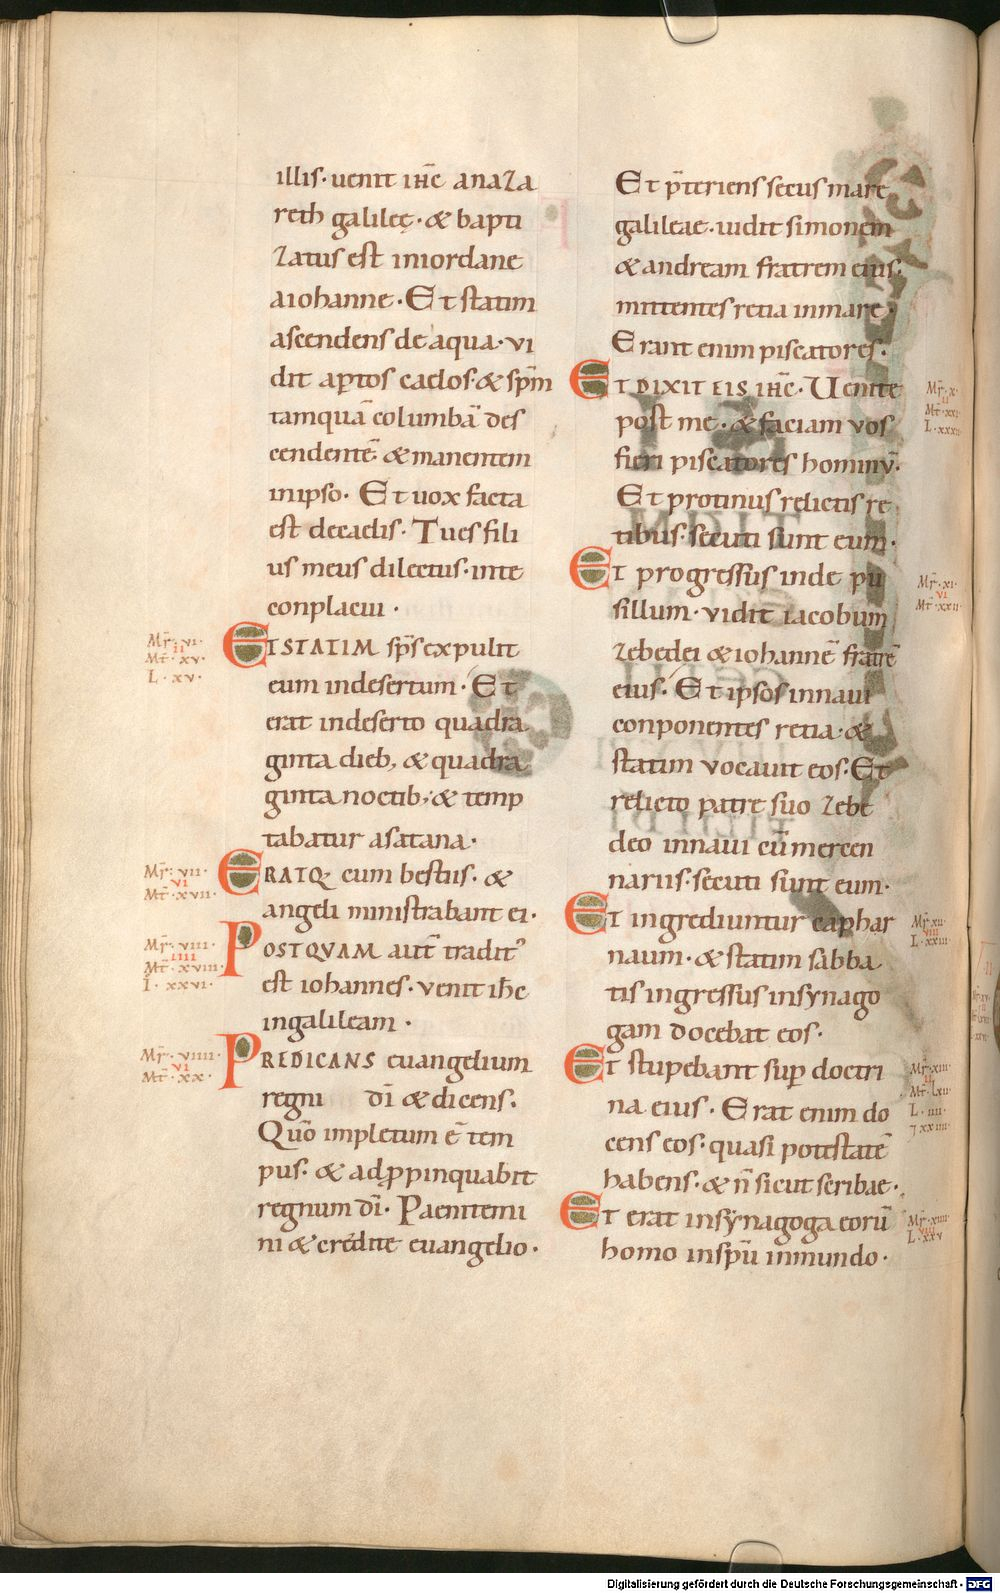 illis· uenit ihc̄ anaza
reth galileę· & bapti
zatus est iniordane
aiohanne· Et statim
ascendens de aqua· vi
dit aptos caelos· & spm̄
tamquā columbā des
cendentē & manentem
inipso· Et uox facta
est decaelis· Tu es fili
us meus dilectus· inte
conplacui·
Mr̄· vi·
ii
Mt̄· xv·
L· xv·
ET STATIM sps̄ expulit
eum indesertum· Et
erat indeserto quadra
ginta dieb; & quadra
ginta noctib; & temp
tabatur asatana·
Mr̄· vii·
vi
Mt̄· xvii·
ERATQ; cum bestiis· &
angeli ministrabant ei·
Mr̄· viii·
iiii
Mt̄· xviii·
I· xxvi·
POSTQVAM aut̄ tradit᾿
est iohannes· venit ihc̄
ingalileam·
Mr̄· viiii·
vi
Mt̄· xx·
PREDICANS euangelium
regni dī & dicens·
Quō impletum ē tem
pus· & adppinquabit
regnum dī· Paenitemi
ni & credite euangelio·
Et p̄teriens secus mare
galileae· uidit simonem
& andream fratrem eius·
mittentes retia inmare·
Erant enim piscatores·
ET DIXIT EIS ihc̄· Uenite
Mr̄· x·
ii
Mt̄· xxi·
L· xxxii
post me· & faciam vos
fieri piscatores hominū·
Et protinus relictis re
tibus· secuti sunt eum·
Et progressus inde pu
Mr̄· xi·
vi
Mt̄· xxii·
sillum· vidit iacobum
zebedei & iohannē fratrē
eius· Et ipsos innaui
conponentes retia· &
statim vocauit eos· Et
relicto patre suo zebe
deo innaui cū mercen
nariis· secuti sunt eum·
Et ingrediuntur caphar
Mr̄· xii·
viii
L· xxiii·
naum· & statim sabba
tis ingressus insynago
gam docebat eos·
Et stupebant sup doctri
Mr̄· xiii·
ii
Mt̄· lxii·
L· iiii·
⁊ xxiiii·
na eius· Erat enim do
cens eos· quasi potestatē
habens· & n̄ sicut scribae·
Et erat insynagoga eorū
Mr̄· xiiii·
viii
L· xxv
homo inspū inmundo·
Digitalisierung gefördert durch die Deutsche Forschungsgemeinschaft - DFG